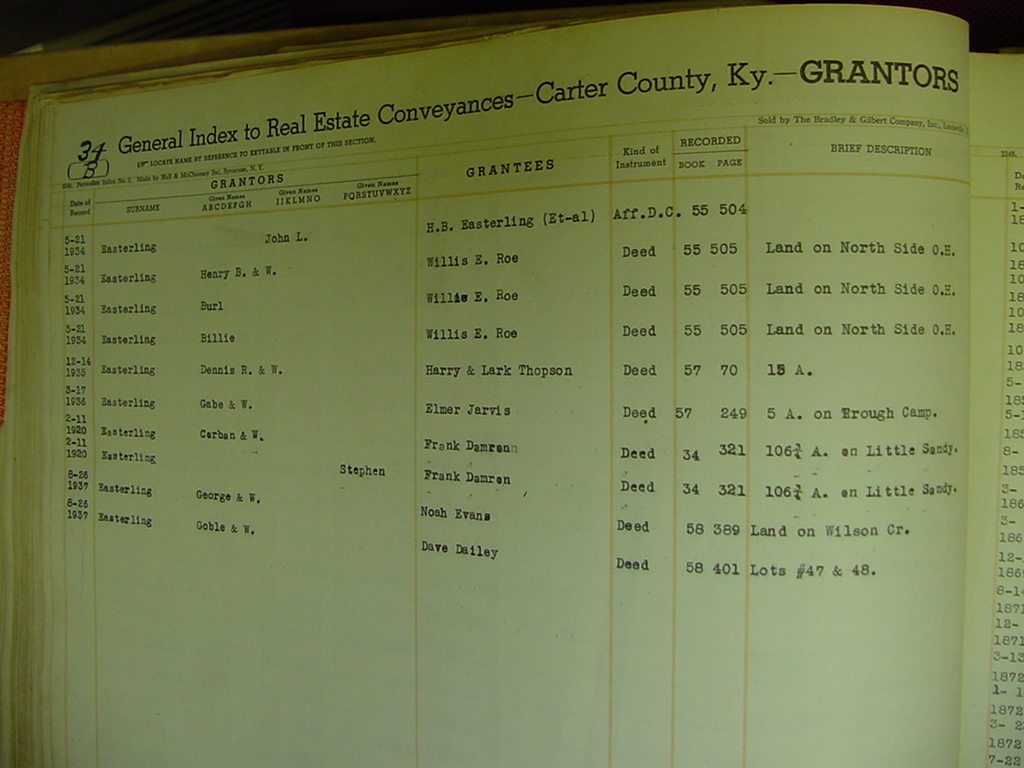 34
B
General Index to Real Estate Conveyances—Carter County, Ky.—GRANTORS
LOCATE NAME BY REFERENCE TO KEYTABLE IN FRONT OF THIS SECTION.
Sold by The Bradley & Gilbert Company, Inc.
Date of Record
GRANTORS
SURNAME
Given Names ABCDEFGH
Given Names IJKLMNO
Given Names PQRSTUVWXYZ
GRANTEES
Kind of Instrument
RECORDED
BOOK PAGE
BRIEF DESCRIPTION
5-21 1934 Easterling John L. H.B. Easterling (Et-al) Aff.D.C. 55 504
5-21 1934 Easterling Henry B. & W. Willis E. Roe Deed 55 505 Land on North Side O.H.
5-21 1934 Easterling Burl Willis E. Roe Deed 55 505 Land on North Side O.H.
5-21 1934 Easterling Billie Willis E. Roe Deed 55 505 Land on North Side O.H.
12-14 1935 Easterling Dennis R. & W. Harry & Lark Thopson Deed 57 70 15 A.
3-17 1936 Easterling Gabe & W. Elmer Jarvis Deed 57 249 5 A. on Trough Camp.
2-11 1920 Easterling Corban & W. Frank Damron Deed 34 321 106¾ A. on Little Sandy.
2-11 1920 Easterling Stephen Frank Damron Deed 34 321 106¾ A. on Little Sandy.
8-26 1937 Easterling George & W. Noah Evans Deed 58 389 Land on Wilson Cr.
8-26 1937 Easterling Goble & W. Dave Dailey Deed 58 401 Lots #47 & 48.